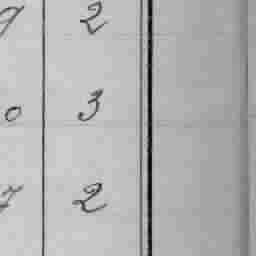 9 2
0 3
7 2